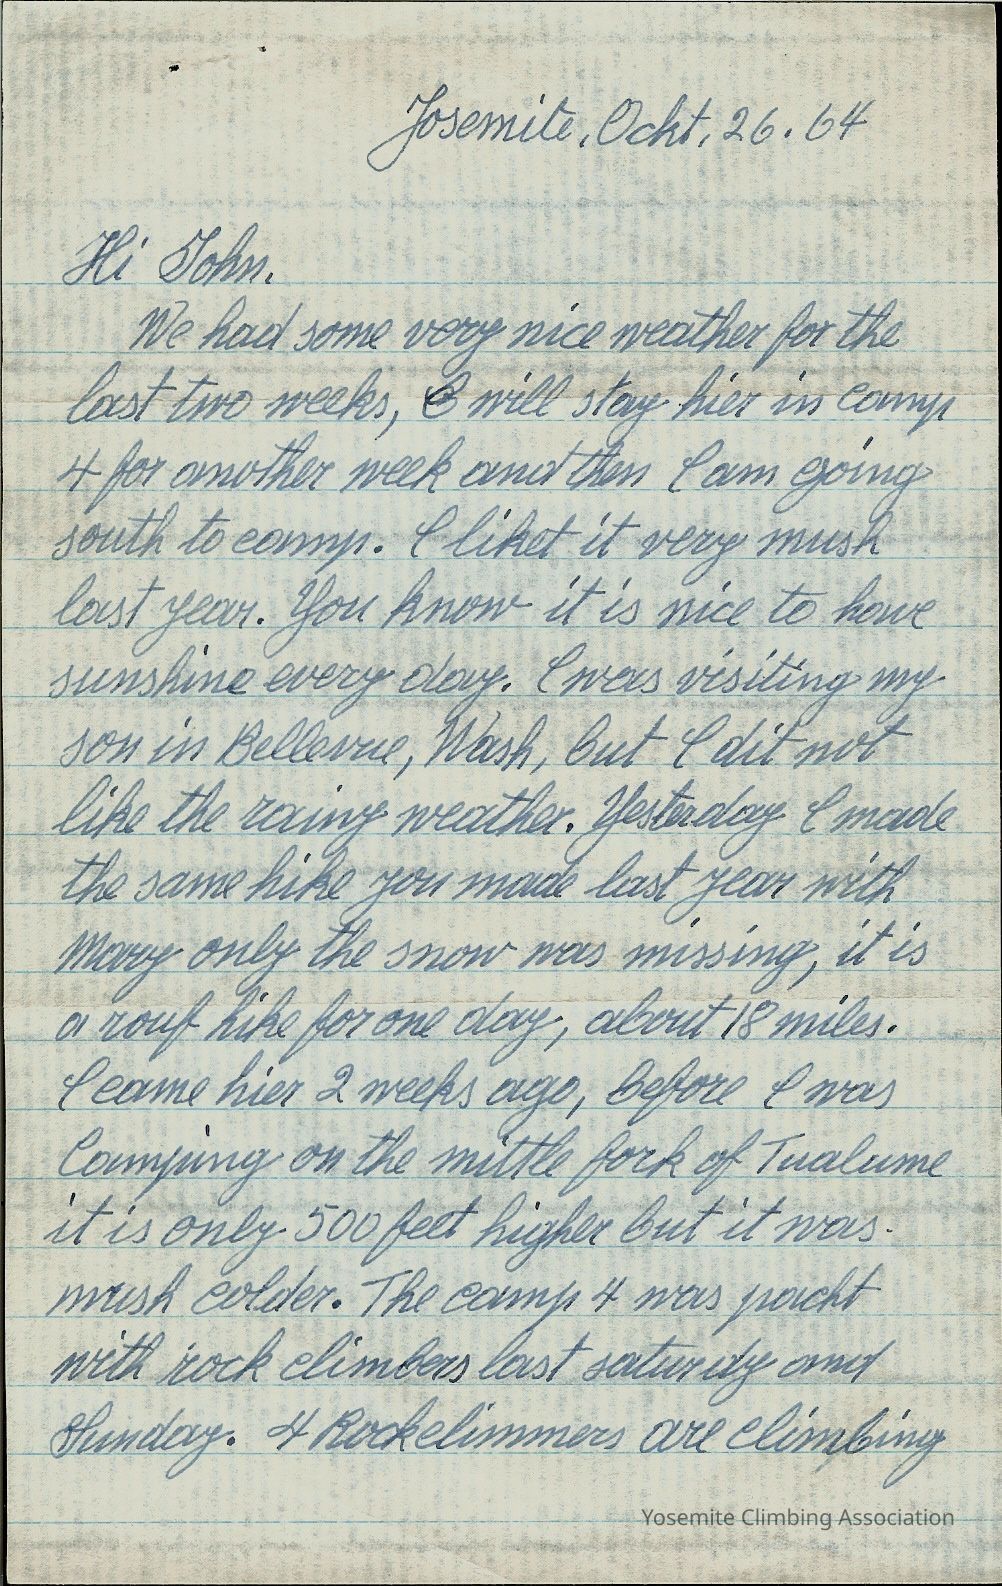 Yosemite, Ockt, 26. 64
Hi John.
We had some very nice weather for the
last two weeks, I will stay hier in Camp
4 for another week and then I am going
south to camp. I liket it very mush
last year. You know it is nice to have
sunshine every day. I was visiting my
son in Bellevue, Wash, but I dit not
like the rainy weather. Yesterday I made
the same hike you made last year with
Mary only the snow was missing, it is
a rouf hike for one day, about 18 miles.
I came hier 2 weeks ago, before I was
Camping on the mittle fork of Tualume
it is only 500 feet higher but it was.
mush colder. The camp 4 was packt
with rock climbers last saturdy and
Sunday. 4 Rockclimmers are climbing
Yosemite Climbing Association